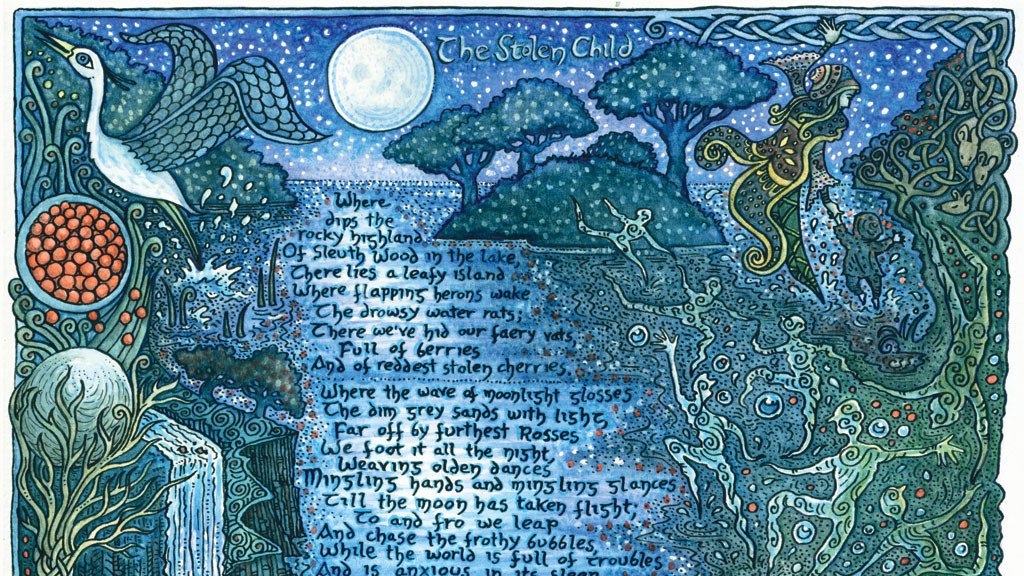 The Stolen Child
Where
dips the
rocky highland
Of Sleuth Wood in the lake,
There lies a leafy island
Where flapping herons wake
The drowsy water rats;
There we've hid our faery vats,
Full of berries
And of reddest stolen cherries.
Where the wave of moonlight glosses
The dim grey sands with light,
Far off by furthest Rosses
We foot it all the night,
Weaving olden dances
Mingling hands and mingling glances
Till the moon has taken flight;
To and fro we leap
And chase the frothy bubbles,
While the world is full of troubles
And is anxious in its sleep.